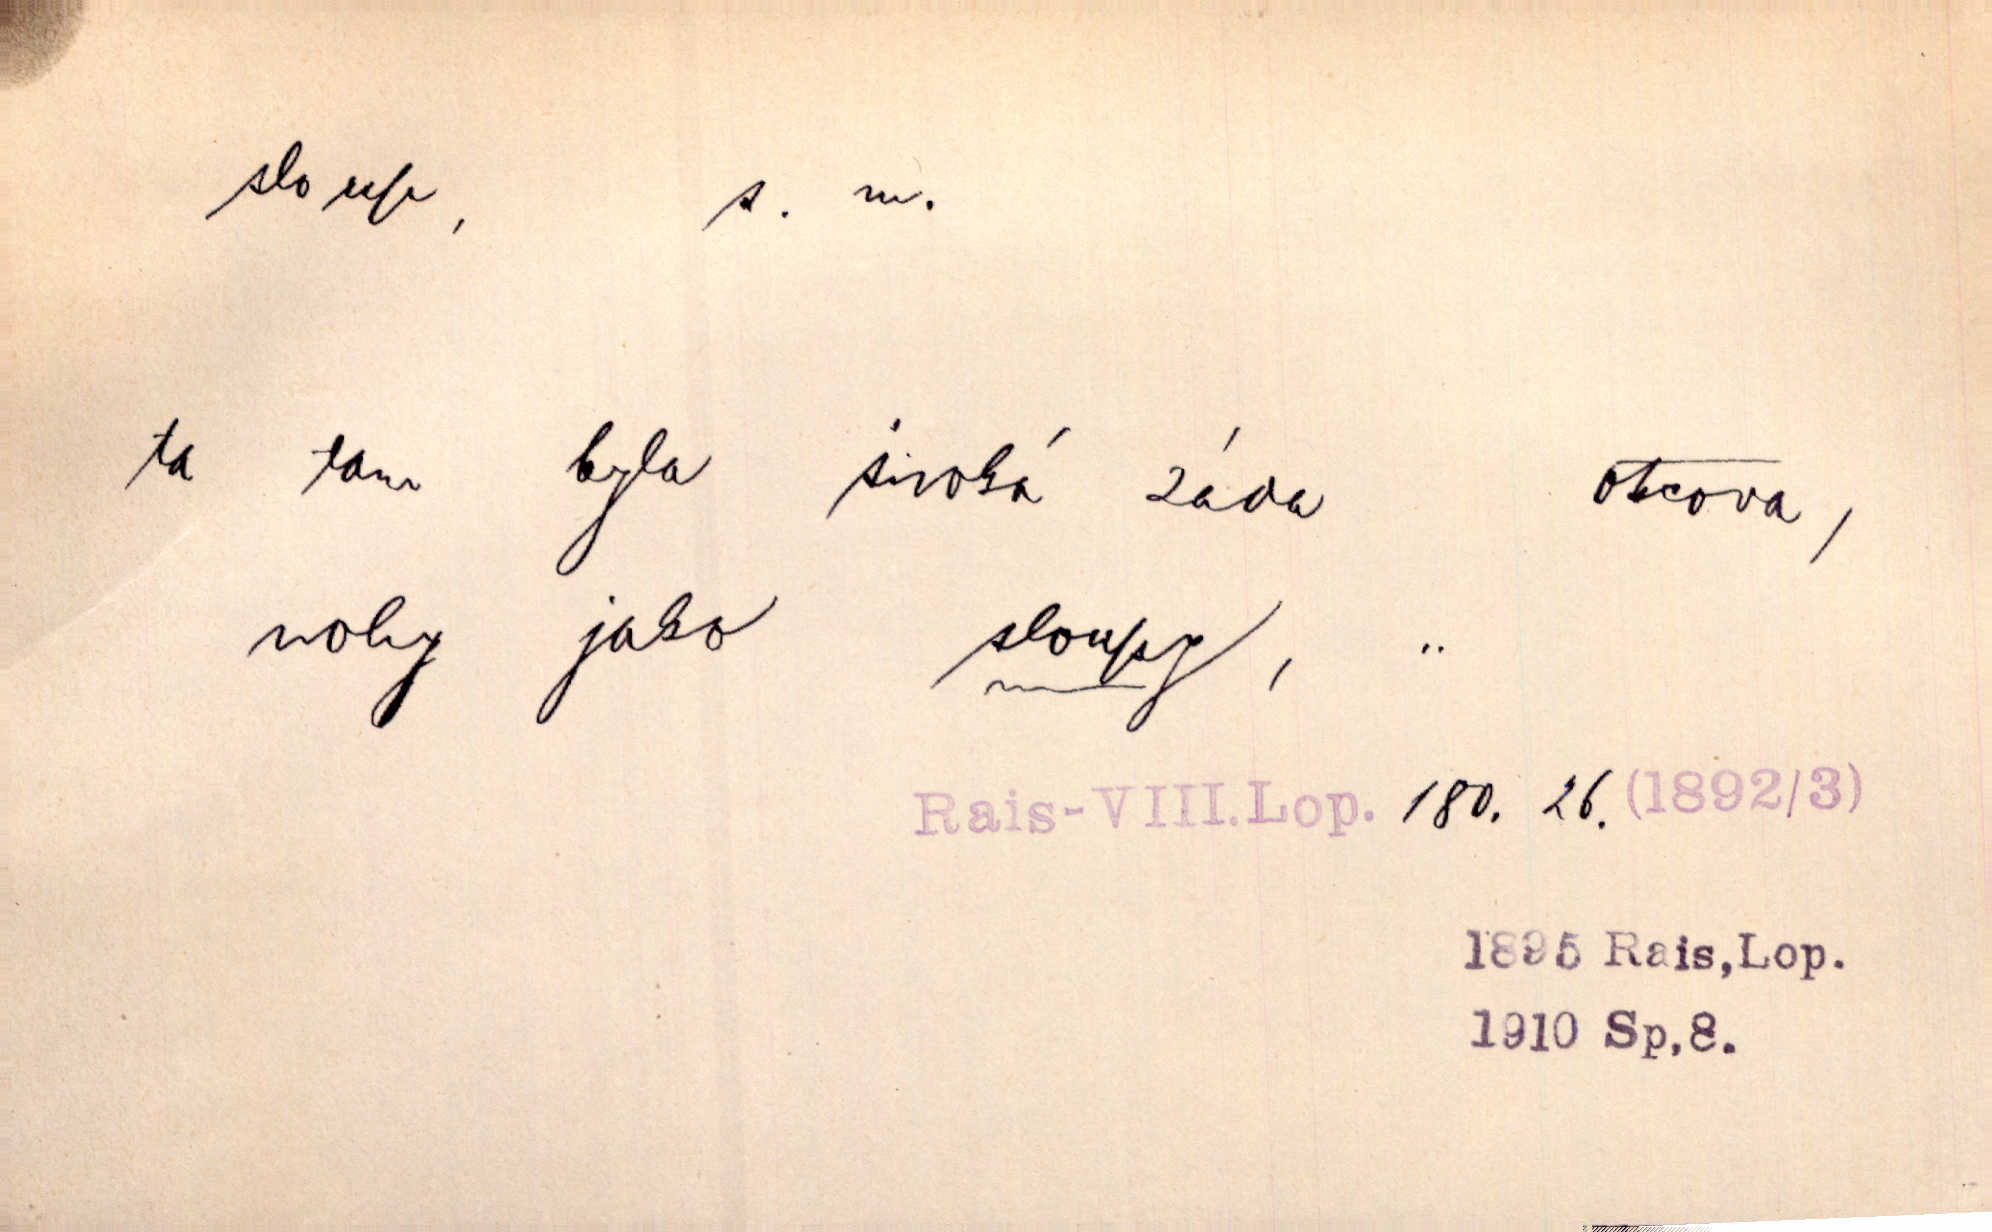 sloup, s. m.
ta tam byla široká záda otcova,
nohy jako sloupy, ..
Rais-VIII.Lop. 180. 26. (1892/3)
1895 Rais,Lop.
1910 Sp,8.